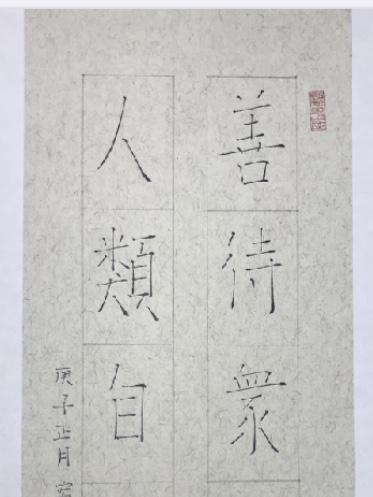 善待眾
人類自
庚子正月